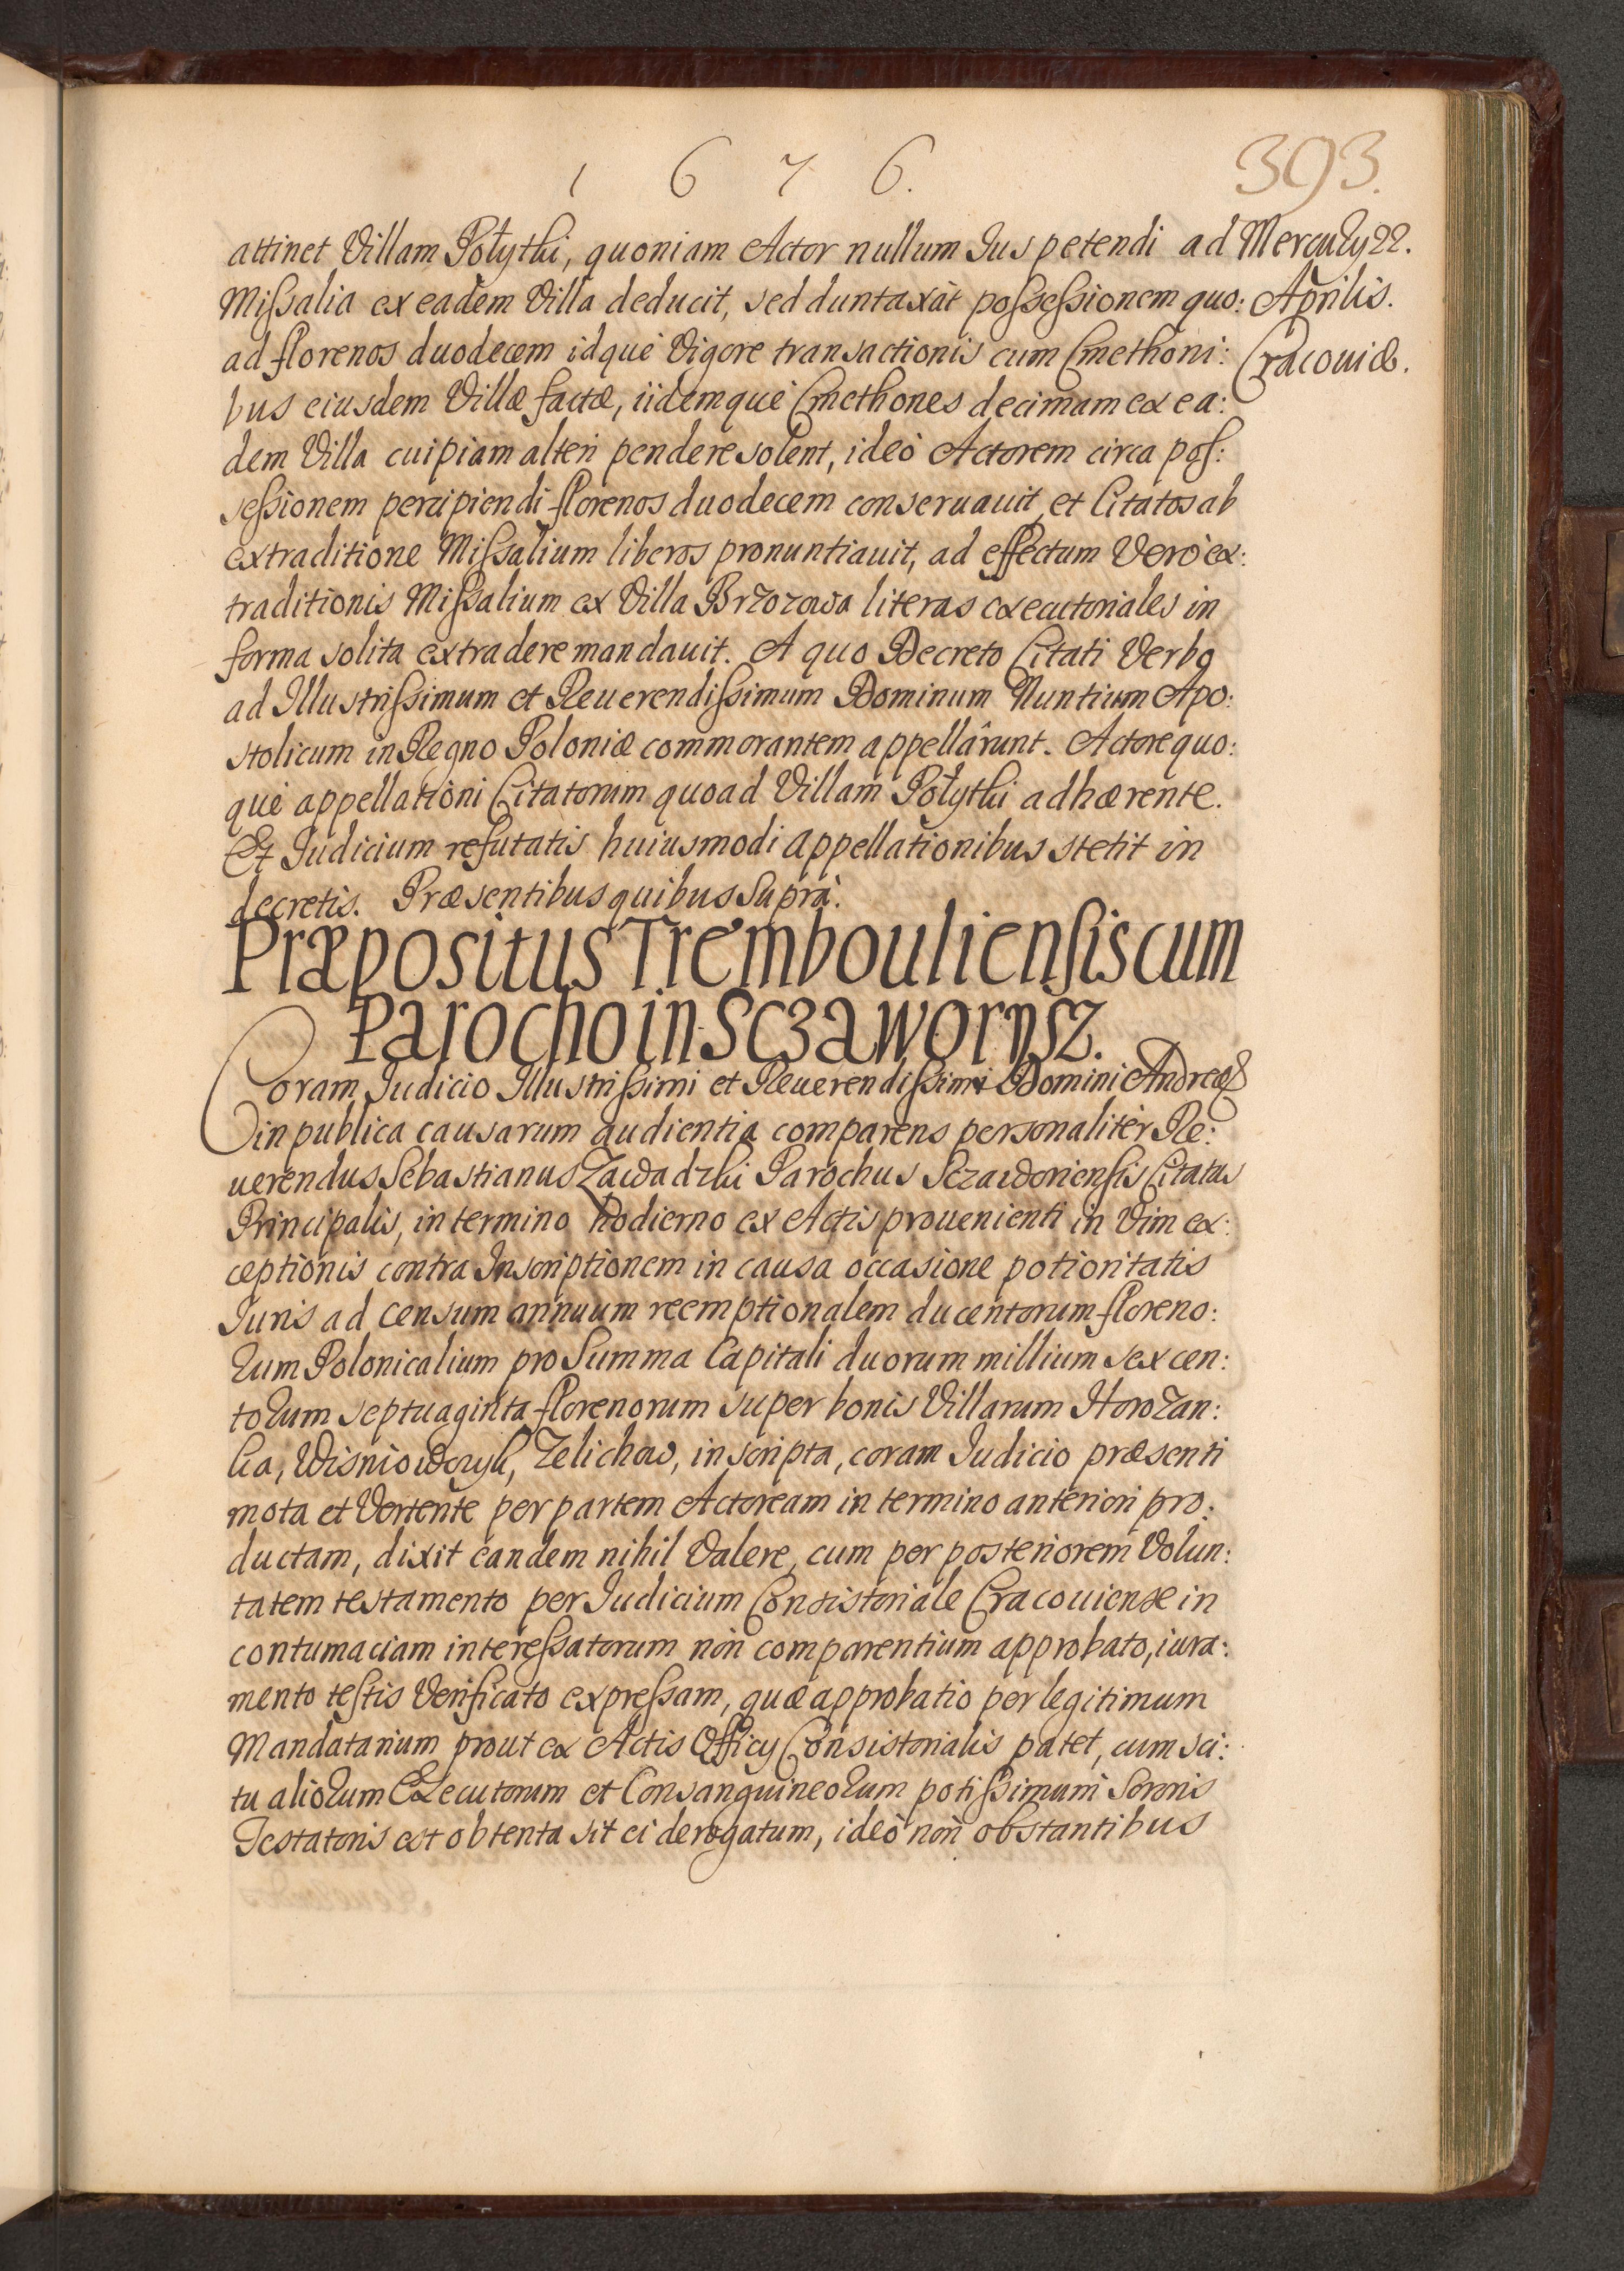 1 6 7 6.
393.
attinet Villam Połythi, quoniam Actor nullum Jus petendi ad
Mercurÿ 22.
Missalia ex eadem Villa deducit, sed duntaxàt possessionem quo:
Aprilis.
ad florenos duodecem idquè Vigore transactionis cum Cmethoni:
Cracouiæ.
bus eiusdem Villæ factæ, iidemquè Cmethones decimam ex ea:
dem Villa cuipiam alteri pendere solent, ideò Actorem circa pos:
sessionem percipiendi florenos duodecem conseruauit, et Citatos ab
extraditione Missalium liberos pronuntiauit, ad effectum Verò ex:
traditionis Missalium ex Villa Brzozowa literas executoriales in
forma solita extradere mandauit. A quo Decreto Citati Verbo
ad Illustrissimum et Reuerendissimum Dominum Nuntium Apo:
stolicum in Regno Poloniæ commorantem appellârunt. Actore quo:
què appellationi Citatorum quoad Villam Połythi adhærente.
Et Judicium refutatis huiusmodi appellationibus stetit in
decretis. Præsentibus quibus Suprà.
Præpositus Trembouliensis cum
Parocho in Sczaworysz.
Coram Judicio Illustrissimi et Reuerendissimi Domini Andreæ
in publica causarum audientia comparens personalitèr Re:
uerendus Sebastianus Zawadzki Parochus Sczaworiensis Citatus
Principalis, in termino hodierno ex Actis prouenienti in Vim ex:
ceptionis contra Inscriptionem in causa occasione potioritatis
Juris ad censum annuum reemptionalem ducentorum floreno:
rum Polonicalium pro Summa Capitali duorum millium sexcen:
torum septuaginta florenorum super bonis Villarum Horozan:
ka, Wisniowczyk, Zelichow, inscripta, coram Judicio præsenti
mota et Vertente per partem Actoream in termino anteriori pro:
ductam, dixit eandem nihil Valere, cum per posteriorem Volun:
tatem testamento per Judicium Consistoriale Cracouiense in
contumaciam interessatorum non comparentium approbato, iura:
mento testis Verificato expressam, quæ approbatio per legitimum
Mandatarium prout ex Actis Officÿ Consistorialis patet, cum sci:
tu aliorum Executorum et Consanguineorum potissimum Sororis
Testatoris est obtenta sit ei derogatum, ideò non obstantibus